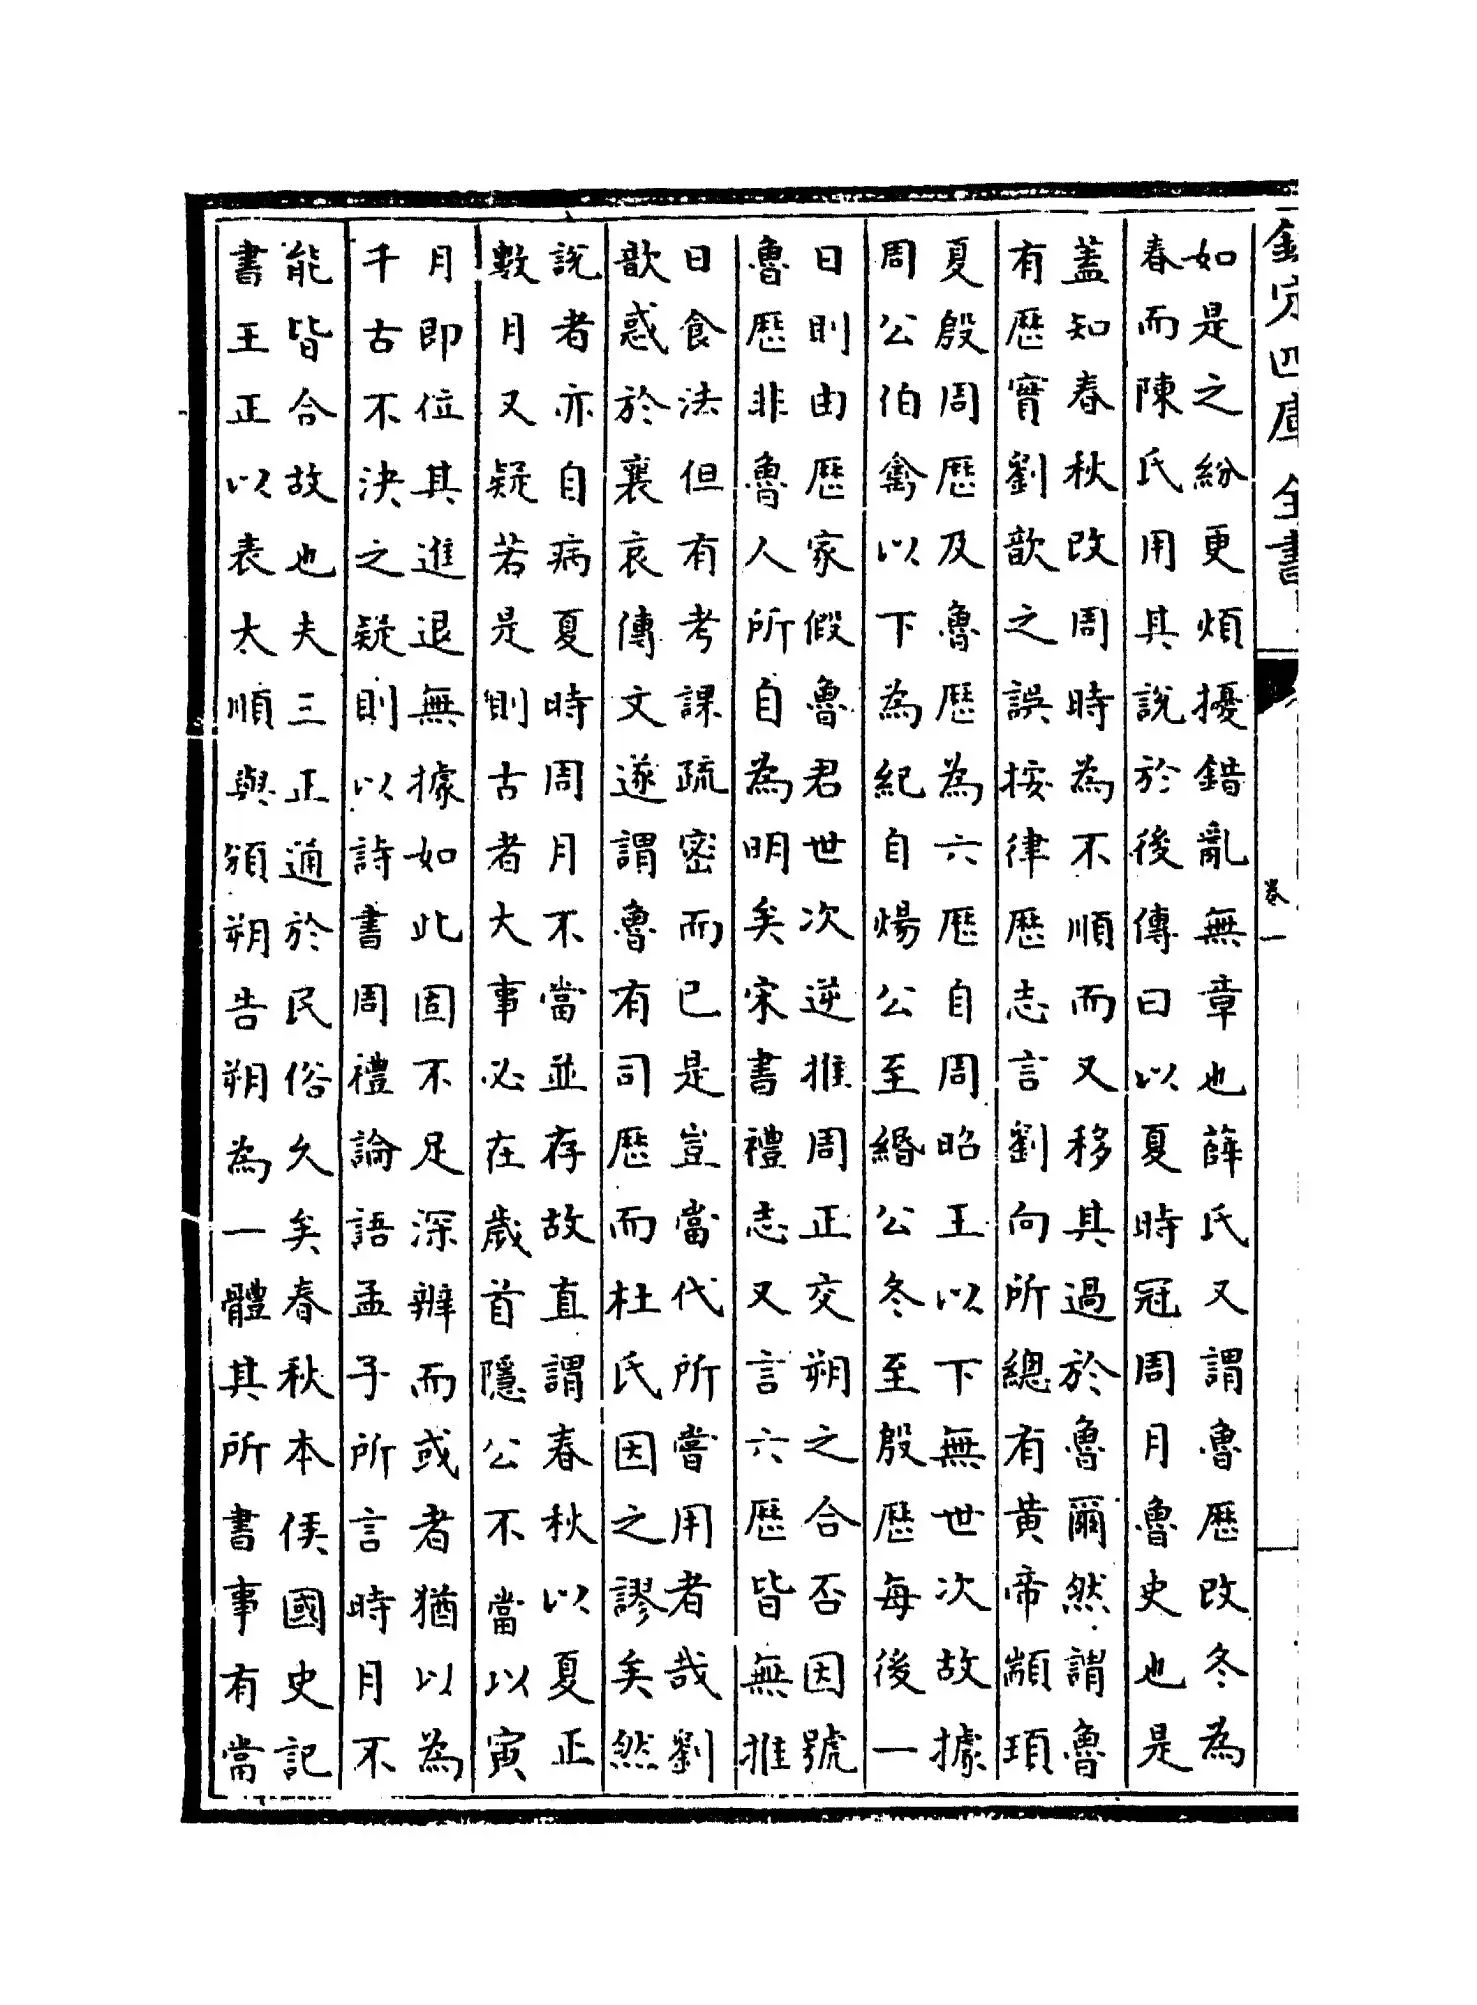 欽定四庫全書
卷一
如是之紛更煩擾錯亂無章也薛氏又謂魯歷改冬為
春而陳氏用其說於後傳曰以夏時冠周月魯史也是
蓋知春秋改周時為不順而又移其過於魯爾然謂魯
有歷實劉歆之誤按律歷志言劉向所總有黄帝顓頊
夏殷周歷及魯歷為六歷自周昭王以下無世次故據
周公伯禽以下為紀自煬公至緡公冬至殷歷每後一
日則由歷家假魯君世次逆推周正交朔之合否因號
魯歷非魯人所自為明矣宋書禮志又言六歷皆無推
日食法但有考課疏密而已是豈當代所嘗用者哉劉
歆惑於襄哀傳文遂謂魯有司歷而杜氏因之謬矣然
說者亦自病夏時周月不當並存故直謂春秋以夏正
數月又疑若是則古者大事必在歲首隱公不當以寅
月即位其進退無據如此固不足深辨而或者猶以為
千古不決之疑則以詩書周禮論語孟子所言時月不
能皆合故也夫三正通於民俗久矣春秋本侯國史記
書王正以表大順與頒朔告朔為一體其所書事有當